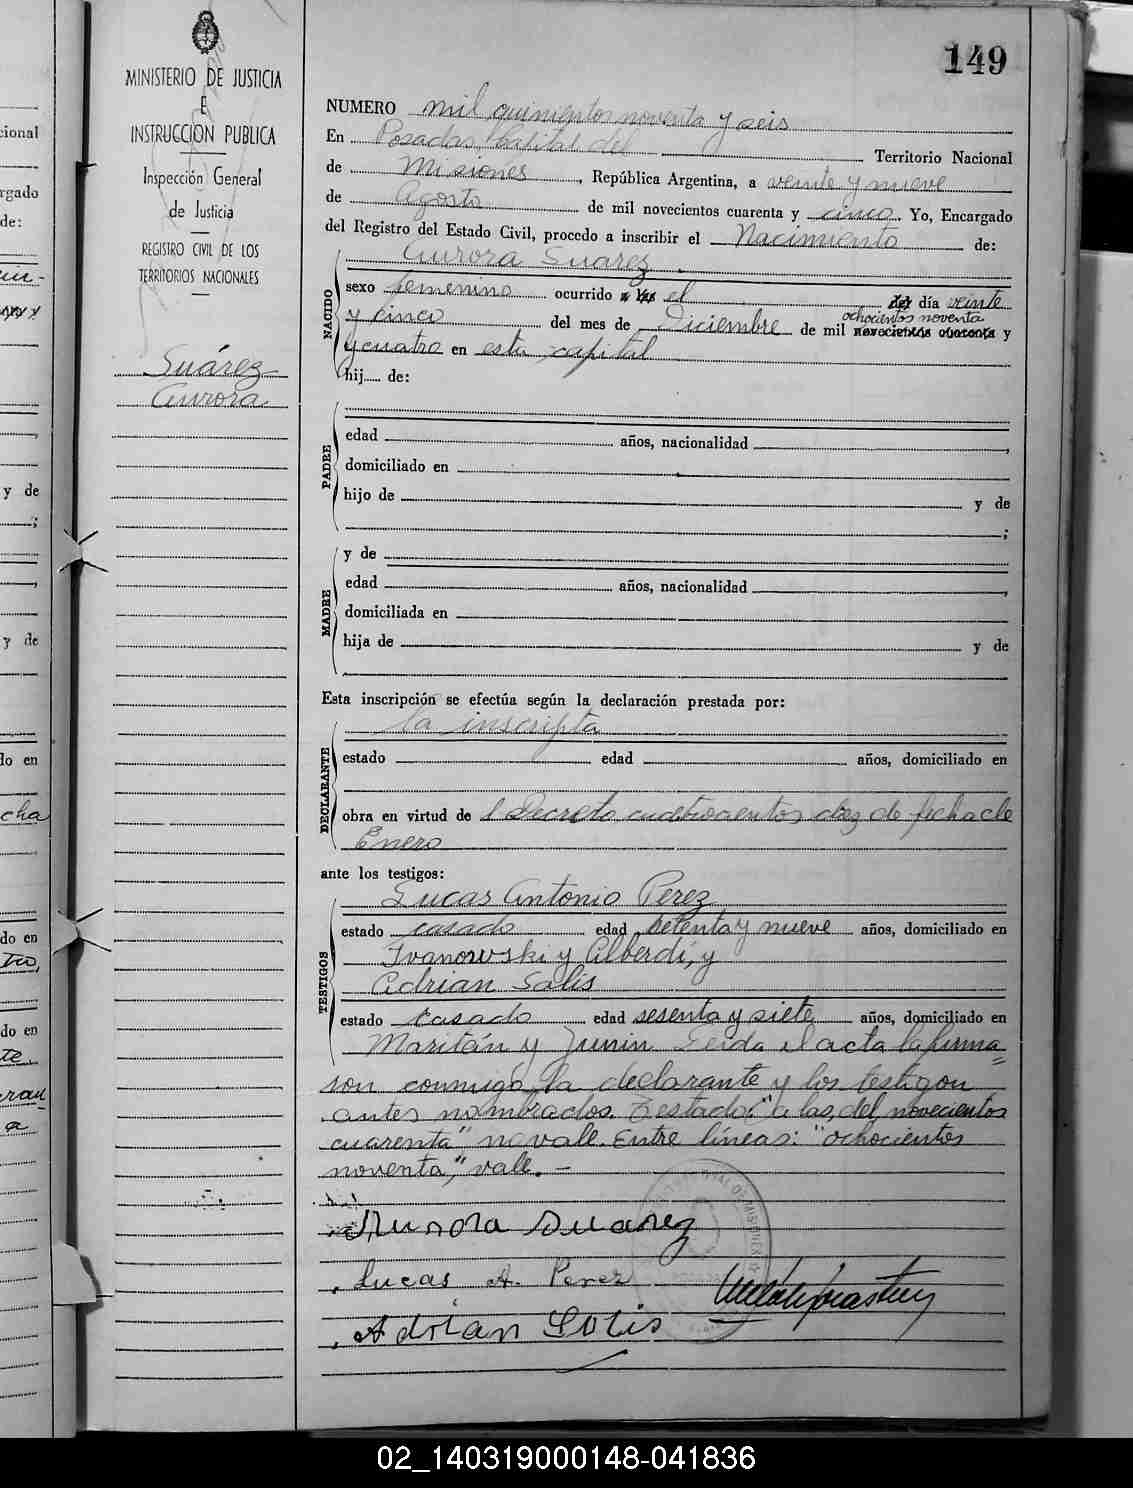 149
MINISTERIO DE JUSTICIA
E
INSTRUCCION PUBLICA
Inspección General
de Justicia
REGISTRO CIVIL DE LOS
TERRITORIOS NACIONALES
Suárez
Aurora
NUMERO mil quinientos noventa y seis
En Posadas, Capital del Territorio Nacional
de Misiones, República Argentina, a veinte y nueve
de Agosto de mil novecientos cuarenta y cinco. Yo, Encargado
del Registro del Estado Civil, procedo a inscribir el Nacimiento de:
NACIDO
Aurora Suarez
sexo femenino ocurrido a las el del día veinte
y cinco del mes de Diciembre de mil novecientos cuarenta y
ochocientos noventa
y cuatro en esta capital
hij de:
PADRE
edad años, nacionalidad ,
domiciliado en
hijo de y de
;
MADRE
y de
edad años, nacionalidad ,
domiciliada en
hija de y de
Esta inscripción se efectúa según la declaración prestada por:
DECLARANTE
la inscripta
estado edad años, domiciliado en
obra en virtud de l Decreto cuatrocientos diez de fecha de
Enero
ante los testigos:
TESTIGOS
Lucas Antonio Perez
estado casado edad setenta y nueve años, domiciliado en
Ivanowski y Alberdi, y
Adrian Solis
estado casado edad sesenta y siete años, domiciliado en
Maritán y Junin Leida el acta la firma=
ron conmigo, la declarante y los testigos
antes nombrados. Testado: "a las, del, novecientos
cuarenta" no vale. Entre líneas: "ochocientos
noventa," vale. —
Aurora Suarez
Lucas A. Perez
Adrian Solis
cional
rgado
de:
y de
;
y de
do en
cha
do en
do en
02_140319000148-041836